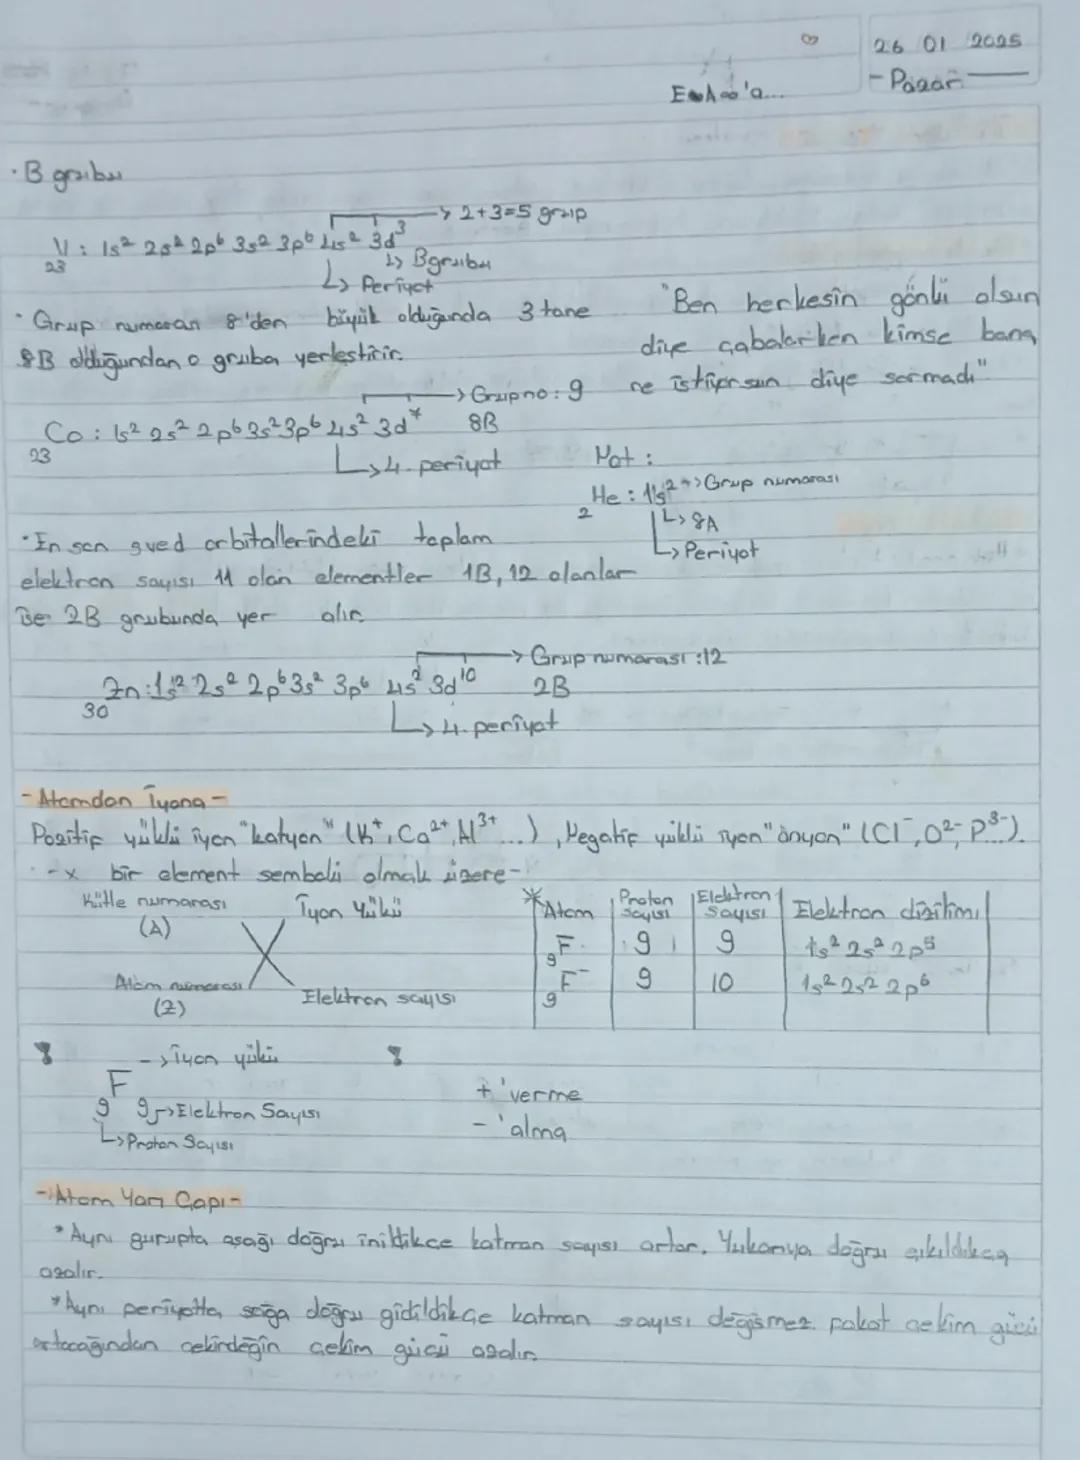 26 01 2025
- Pazar
· B grubu
→ 2+3=5 grup
23V : 1s² 2s² 2p⁶ 3s² 3p⁶ 4s² 3d³
↳ B grubu
↳ Periyot
· Grup numarası 8'den büyük olduğunda 3 tane
8B olduğundan o gruba yerleştirir.
"Ben herkesin gönlü olsun
diye çabalarken kimse bana
ne istiyorsun diye sormadı"
→ Grup no: 9
Co : 1s² 2s² 2p⁶ 3s² 3p⁶ 4s² 3d⁷ 8B
23
↳ 4. periyot
Not :
2He : 1s² → Grup numarası
↳ 8A
↳ Periyot
· En son s ve d orbitallerindeki toplam
elektron sayısı 11 olan elementler 1B, 12 olanlar
ise 2B grubunda yer alır.
→ Grup numarası : 12
30Zn : 1s² 2s² 2p⁶ 3s² 3p⁶ 4s² 3d¹⁰ 2B
↳ 4. periyot
- Atomdan İyona -
Pozitif yüklü iyon "katyon" (K⁺, Ca²⁺, Al³⁺ ...), Negatif yüklü iyon "anyon" (Cl⁻, O²⁻, P³⁻).
- x bir element sembolü olmak üzere -
Kütle numarası İyon Yükü
(A)
X
Atom numarası Elektron sayısı
(Z)
* Atom | Proton Sayısı | Elektron Sayısı | Elektron dizilimi
9F | 9 | 9 | 1s² 2s² 2p⁵
9F⁻ | 9 | 10 | 1s² 2s² 2p⁶
- → iyon yükü
F
9 9 → Elektron Sayısı
↳ Proton Sayısı
+ 'verme
- 'alma
- Atom Yarı Çapı -
* Aynı gurupta aşağı doğru inildikçe katman sayısı artar. Yukarıya doğru çıkıldıkça
azalır.
* Aynı periyotta sağa doğru gidildikçe katman sayısı değişmez fakat çekim gücü
artacağından çekirdeğin çekim gücü azalır.